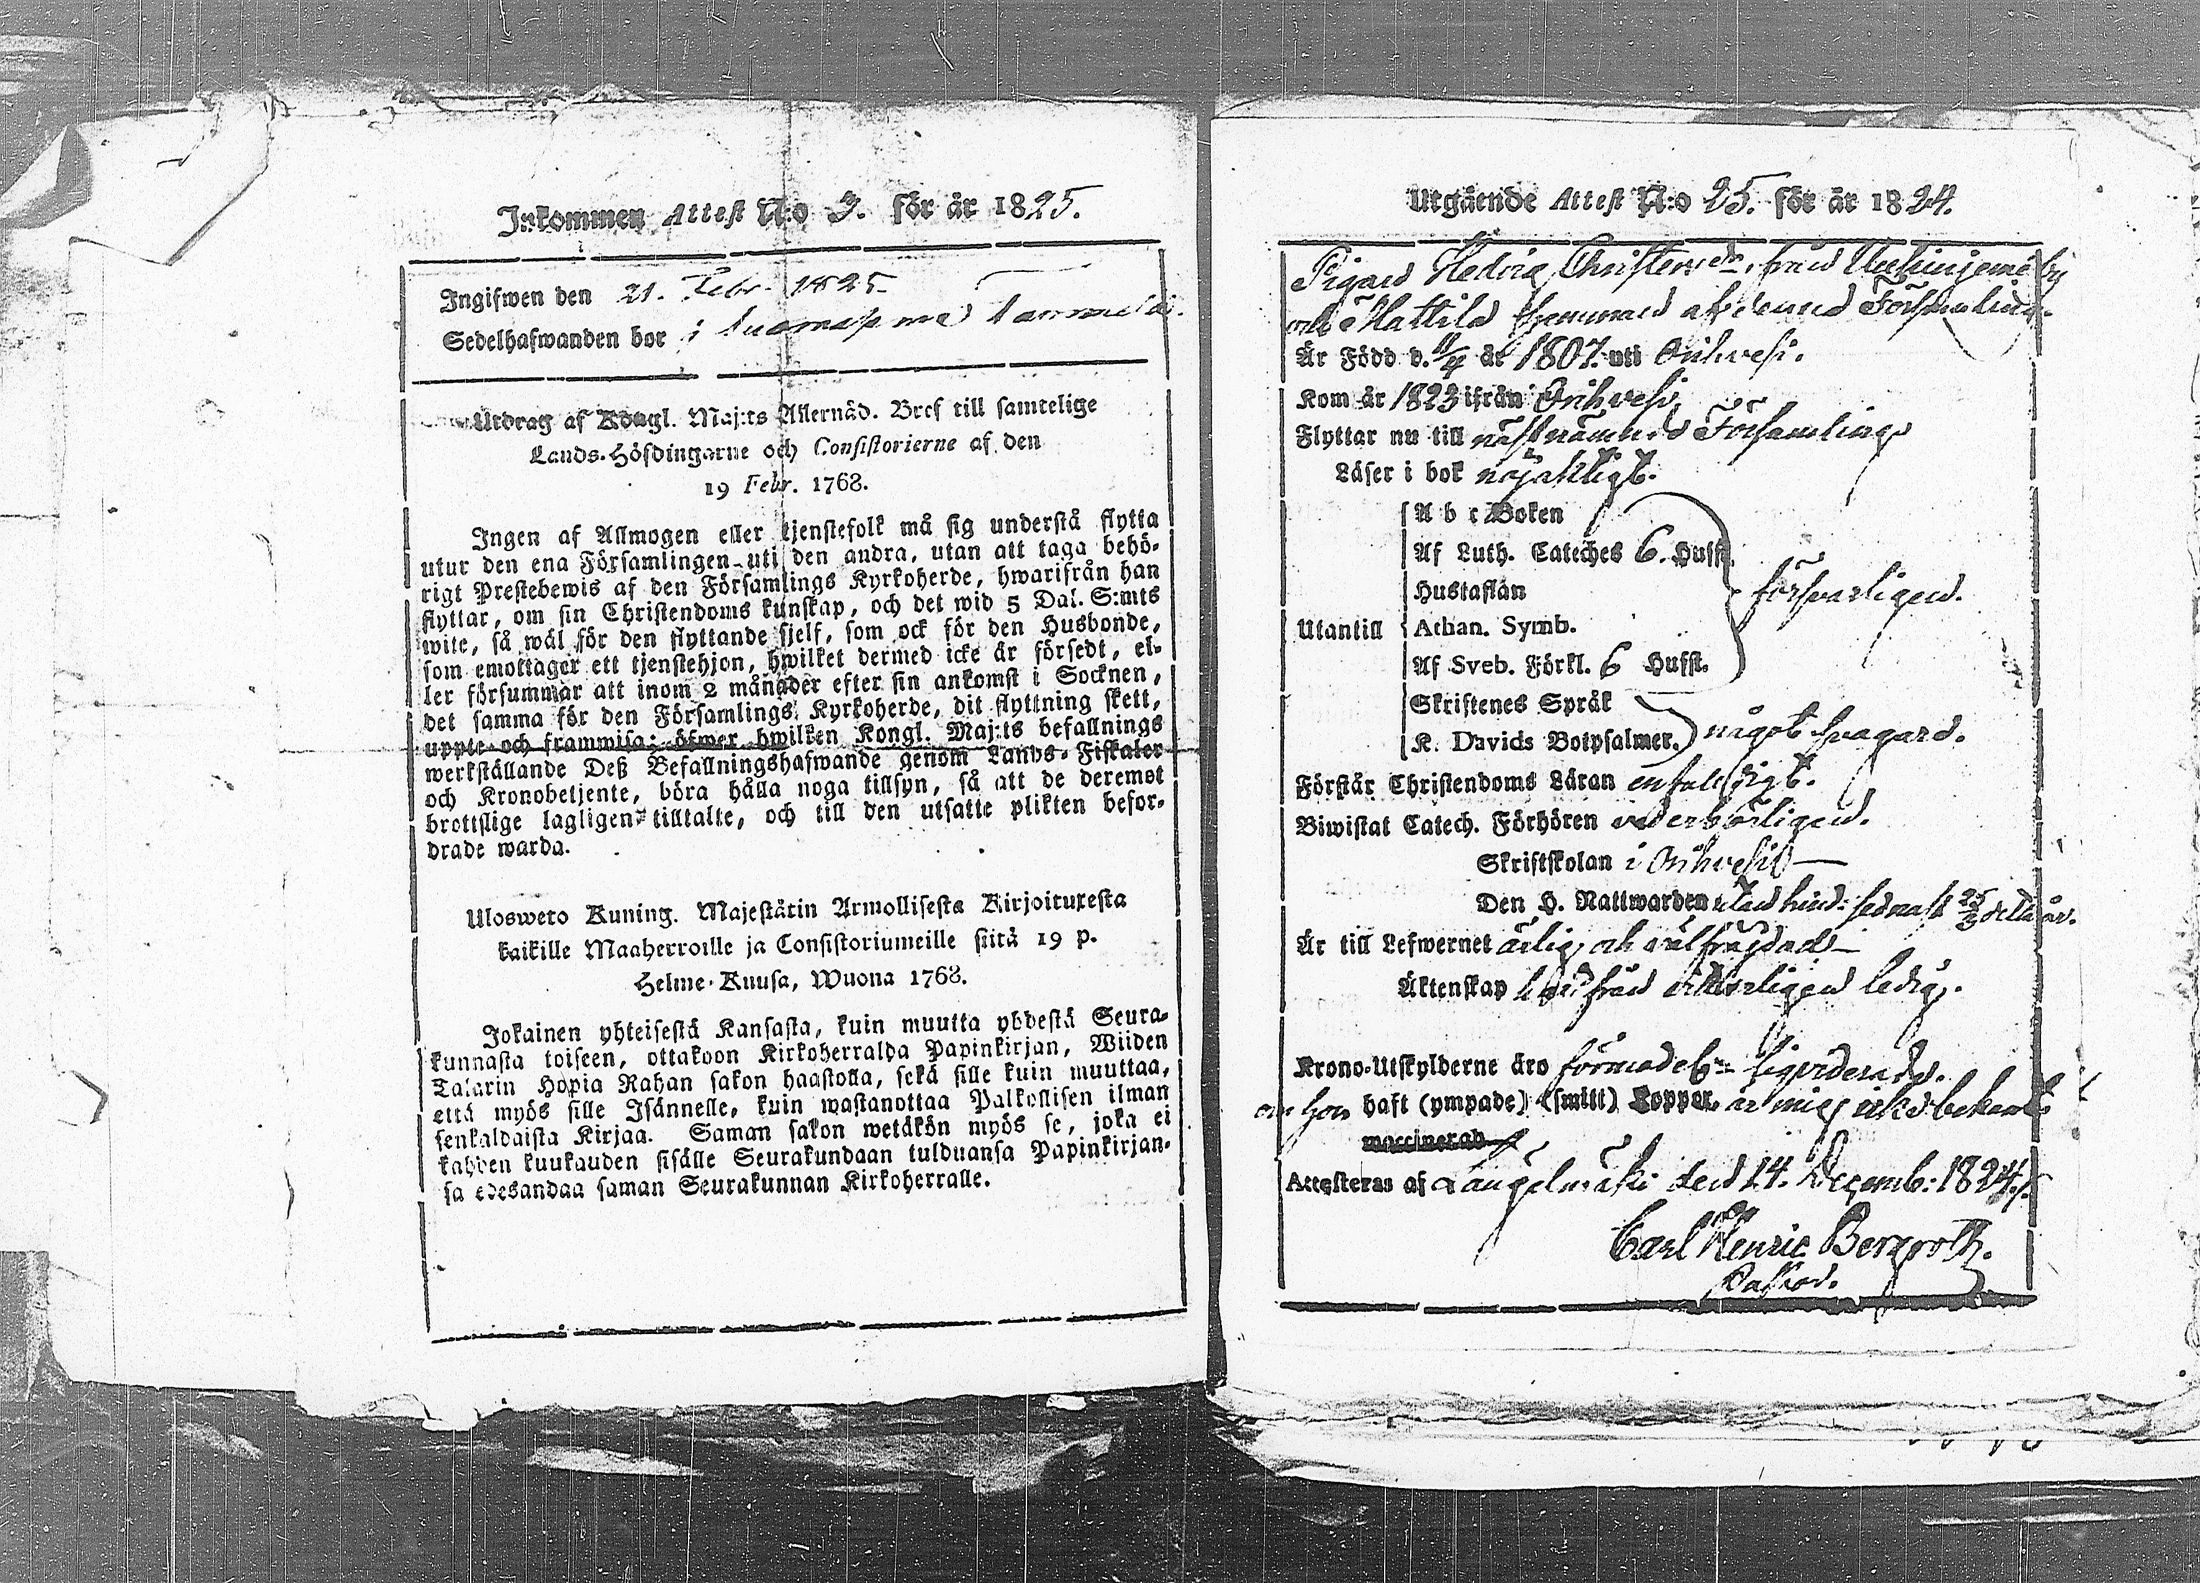 Inkommen Attest N:o 3. för år 1825.
Ingifwen den 21. Febr. 1825
Sedelhafwanden bor i
Utdrag af Kongl. Maj:ts Allernåd. Bref till samtelige
Lands-Höfdingarne och Consistorierne af den
19 Febr. 1768.
Ingen af Allmogen eller tjenstefolk må sig understå flytta
utur den ena Församlingen uti den andra, utan att taga behö-
rigt Prestebewis af den Församlings Kyrkoherde, hwarifrån han
flyttar, om sin Christendoms kunskap, och det wid 5 Dal. S:mts
wite, så wäl för den flyttande sjelf, som ock för den Husbonde,
som emottager ett tjenstehjon, hwilket dermed icke är försedt, el-
ler försummar att inom 2 månader efter sin ankomst i Socknen,
det samma för den Församlings Kyrkoherde, dit flyttning skett,
uppte och framwisa; öfwer hwilken Kongl. Maj:ts befallnings
werkställande Deß Befallningshafwande genom Lands-Fiskaler
och Kronobetjente, böra hålla noga tillsyn, så att de deremot
brottslige lagligen tilltalte, och till den utsatte plikten befor-
drade warda.
Ulosweto Kuning. Majestätin Armollisesta Kirjoituxesta
kaikille Maaherroille ja Consistoriumeille siitä 19 p.
Helme-Kuusa, Wuona 1768.
Jokainen yhteisestä Kansasta, kuin muutta yhdestä Seura-
kunnasta toiseen, ottakoon Kirkoherralda Papinkirjan, Wiiden
Talarin Hopia Rahan sakon haastolla, sekä sille kuin muuttaa,
että myös sille Isännelle, kuin wastanottaa Palkollisen ilman
senkaldaista Kirjaa. Saman sakon wetäkön myös se, joka ei
kahden kuukauden sisälle Seurakundaan tulduansa Papinkirjan-
sa edesandaa saman Seurakunnan Kirkoherralle.
Utgående Attest N:o 25. för år 1824.
Pigan Hedvig Christersdr. från by
och Mattila hemman af denna Församling.
Är Född d. 11/4 år 1807. uti Orihvesi.
Kom år 1823 ifrån Orihvesi,
Flyttar nu till nästnämnde Församling
Läser i bok nöjaktigt.
A b c Boken
Af Luth. Cateches 6. Hufst.
Hustaflan
försvarligen.
Utantill Athan. Symb.
Af Sveb. Förkl. 6 Hufst.
Skriftenes Språk
K. Davids Botpsalmer. något svagare.
Förstår Christendoms Läran enfalldigt.
Biwistat Catech. Förhören vederbörligen.
Skriftskolan i Orihvesi
Den H. Nattwarden sednast 25/3 detta år.
Är till Lefwernet ärlig och välfrejdad
Äktenskap ledig.
Krono-Utskylderne äro förmodel: liqviderade.
om hon haft (ympade) (smitt) Koppor, är mig icke bekant
vaccinerad
Attesteras af Längelmäki den 14. Decemb: 1824.
Carl Henric Bergroth.
Pastor.